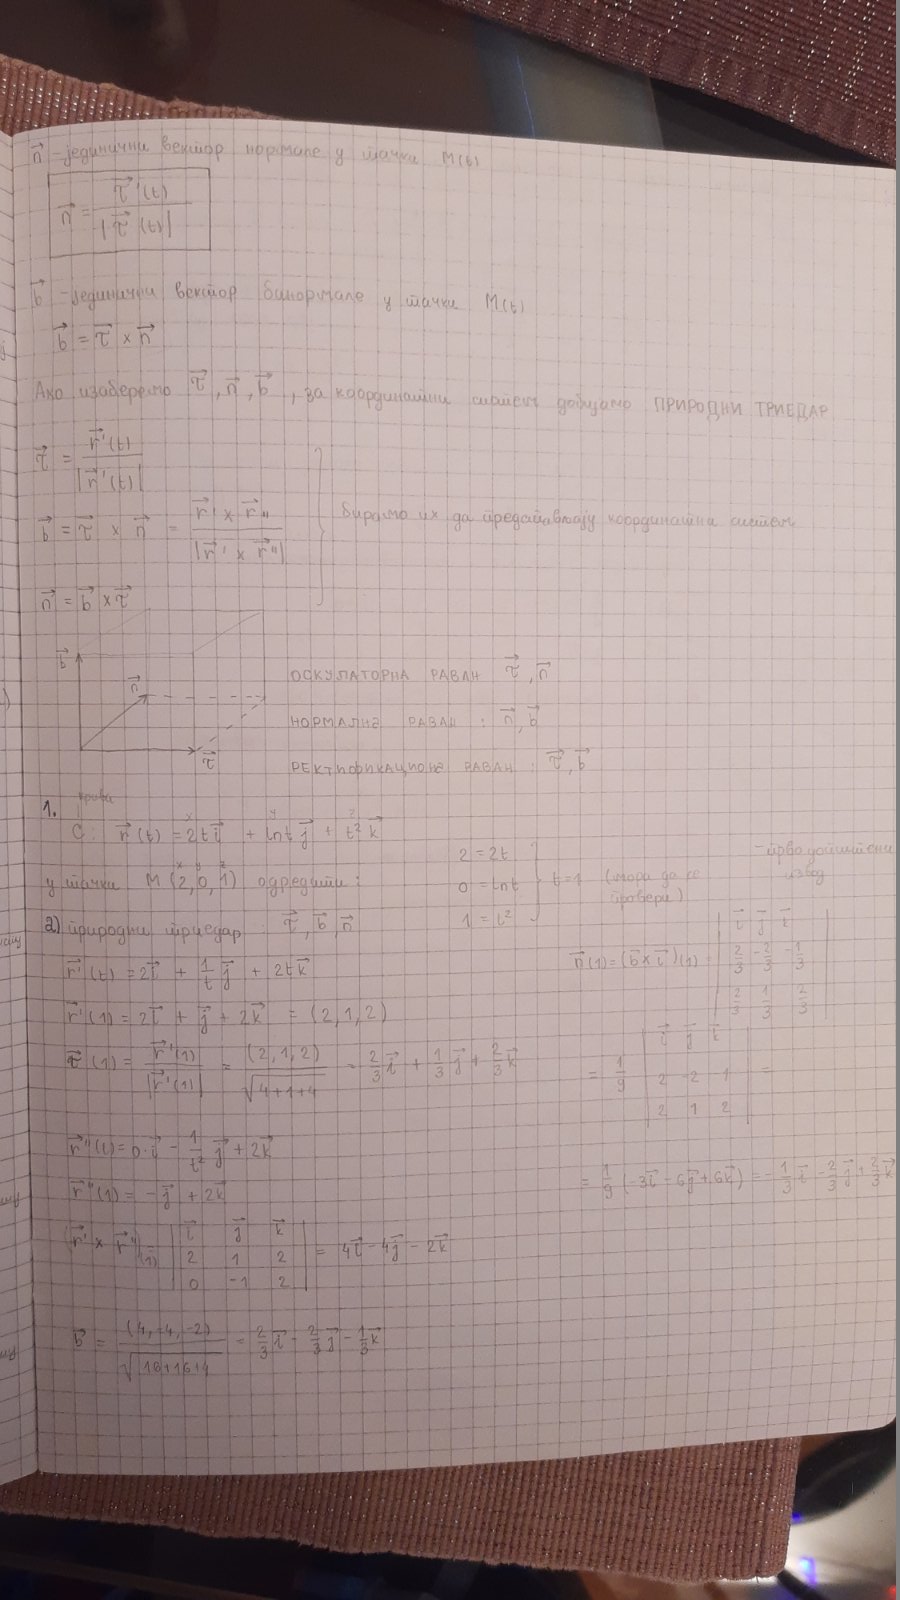 n⃗ - јединични вектор нормале у тачки M(t)
n⃗ = τ⃗'(t) / |τ⃗'(t)|
b⃗ - јединични вектор бинормале у тачки M(t)
b⃗ = τ⃗ × n⃗
Ако изаберемо τ⃗, n⃗, b⃗, за координатни систем добијамо ПРИРОДНИ ТРИЕДАР
τ⃗ = r⃗'(t) / |r⃗'(t)|
b⃗ = τ⃗ × n⃗ = r⃗' × r⃗'' / |r⃗' × r⃗''|
бирамо их да представљају координатни систем
n⃗ = b⃗ × τ⃗
b⃗
n⃗
τ⃗
ОСКУЛАТОРНА РАВАН τ⃗, n⃗
НОРМАЛНА РАВАН : n⃗, b⃗
РЕКТИФИКАЦИОНА РАВАН : τ⃗, b⃗
1. крива
x y z
C: r⃗(t) = 2t i⃗ + ln t j⃗ + t² k⃗
x y z
у тачки M(2,0,1) одредити:
2 = 2t
0 = ln t
1 = t²
} t=1 (мора да се провери)
- прво
извод
а) природни триедар : τ⃗, b⃗, n⃗
r⃗'(t) = 2i⃗ + 1/t j⃗ + 2t k⃗
r⃗'(1) = 2i⃗ + j⃗ + 2k⃗ = (2,1,2)
τ⃗(1) = r⃗'(1) / |r⃗'(1)| = (2,1,2) / √(4+1+4) = 2/3 i⃗ + 1/3 j⃗ + 2/3 k⃗
r⃗''(t) = 0·i⃗ - 1/t² j⃗ + 2k⃗
r⃗''(1) = -j⃗ + 2k⃗
(r⃗' × r⃗'')(1) | i⃗ j⃗ k⃗ |
| 2 1 2 | = 4i⃗ - 4j⃗ - 2k⃗
| 0 -1 2 |
b⃗ = (4,-4,-2) / √(16+16+4) = 2/3 i⃗ - 2/3 j⃗ - 1/3 k⃗
n⃗(1) = (b⃗ × τ⃗)(1) = | i⃗ j⃗ k⃗ |
| 2/3 -2/3 -1/3 |
| 2/3 1/3 2/3 |
= 1/9 | i⃗ j⃗ k⃗ |
| 2 -2 -1 | =
| 2 1 2 |
= 1/9 (-3i⃗ - 6j⃗ + 6k⃗) = -1/3 i⃗ - 2/3 j⃗ + 2/3 k⃗